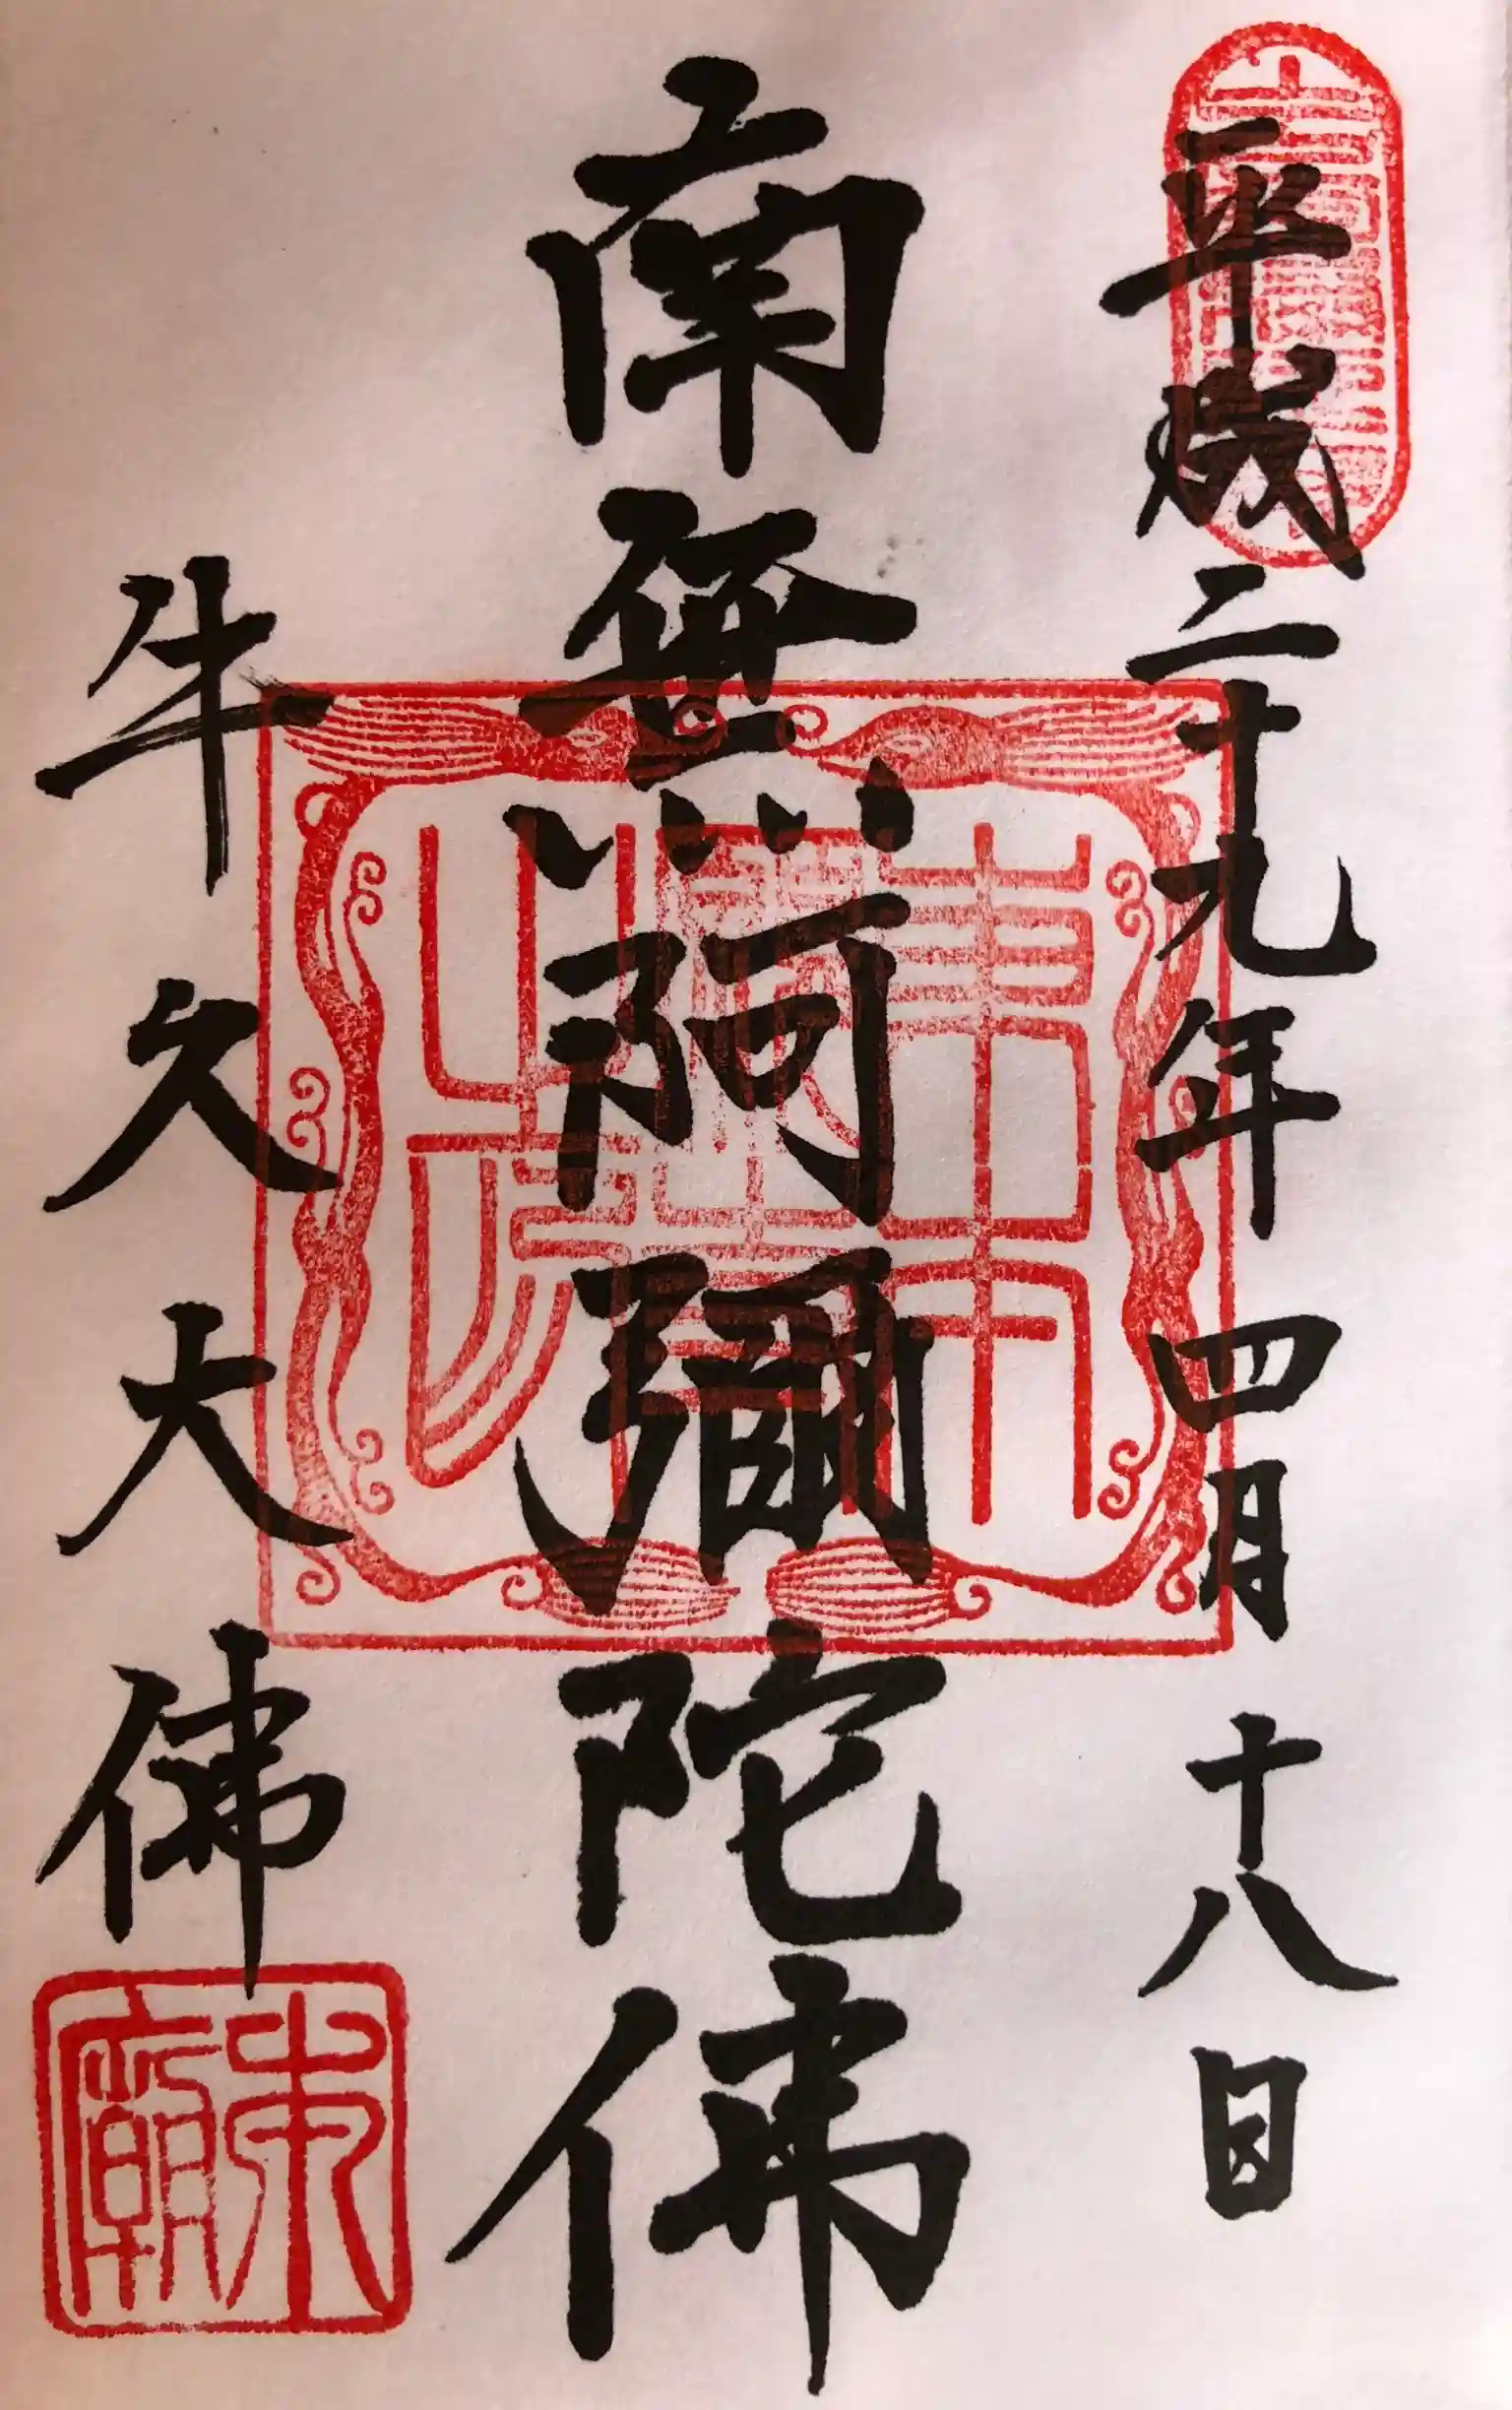 平成二十九年四月十八日
南無阿彌陀佛
牛久大佛